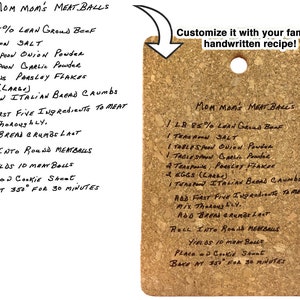 Customize it with your fam
handwritten recipe!
Mom Mom's Meat Balls
% Lean Groud Boef
Salt
Onion Powder
Garlic Powder
Parsley Flakes
(Large)
Italian Bread Crumbs
First Five Ingredients to Meat
Thoroughly.
Bread Crumbs Last
Into Round Meatballs
10 Meat Balls
on Cookie Sheet
at 350° for 30 minutes
Mom Mom's Meat Balls
1 LB 85% Lean Groud Boef
1 Teaspoon Salt
1 Tablespoon Onion Powder
1 Tablespoon Garlic Powder
Parsley Flakes
2 Eggs (Large)
1 Teaspoon Italian Bread Crumbs
Add First Five Ingredients to Meat
Mix Thoroughly.
Add Bread Crumbs Last
Roll Into Round Meatballs
Yields 10 Meat Balls
Place on Cookie Sheet
Bake at 350° for 30 minutes